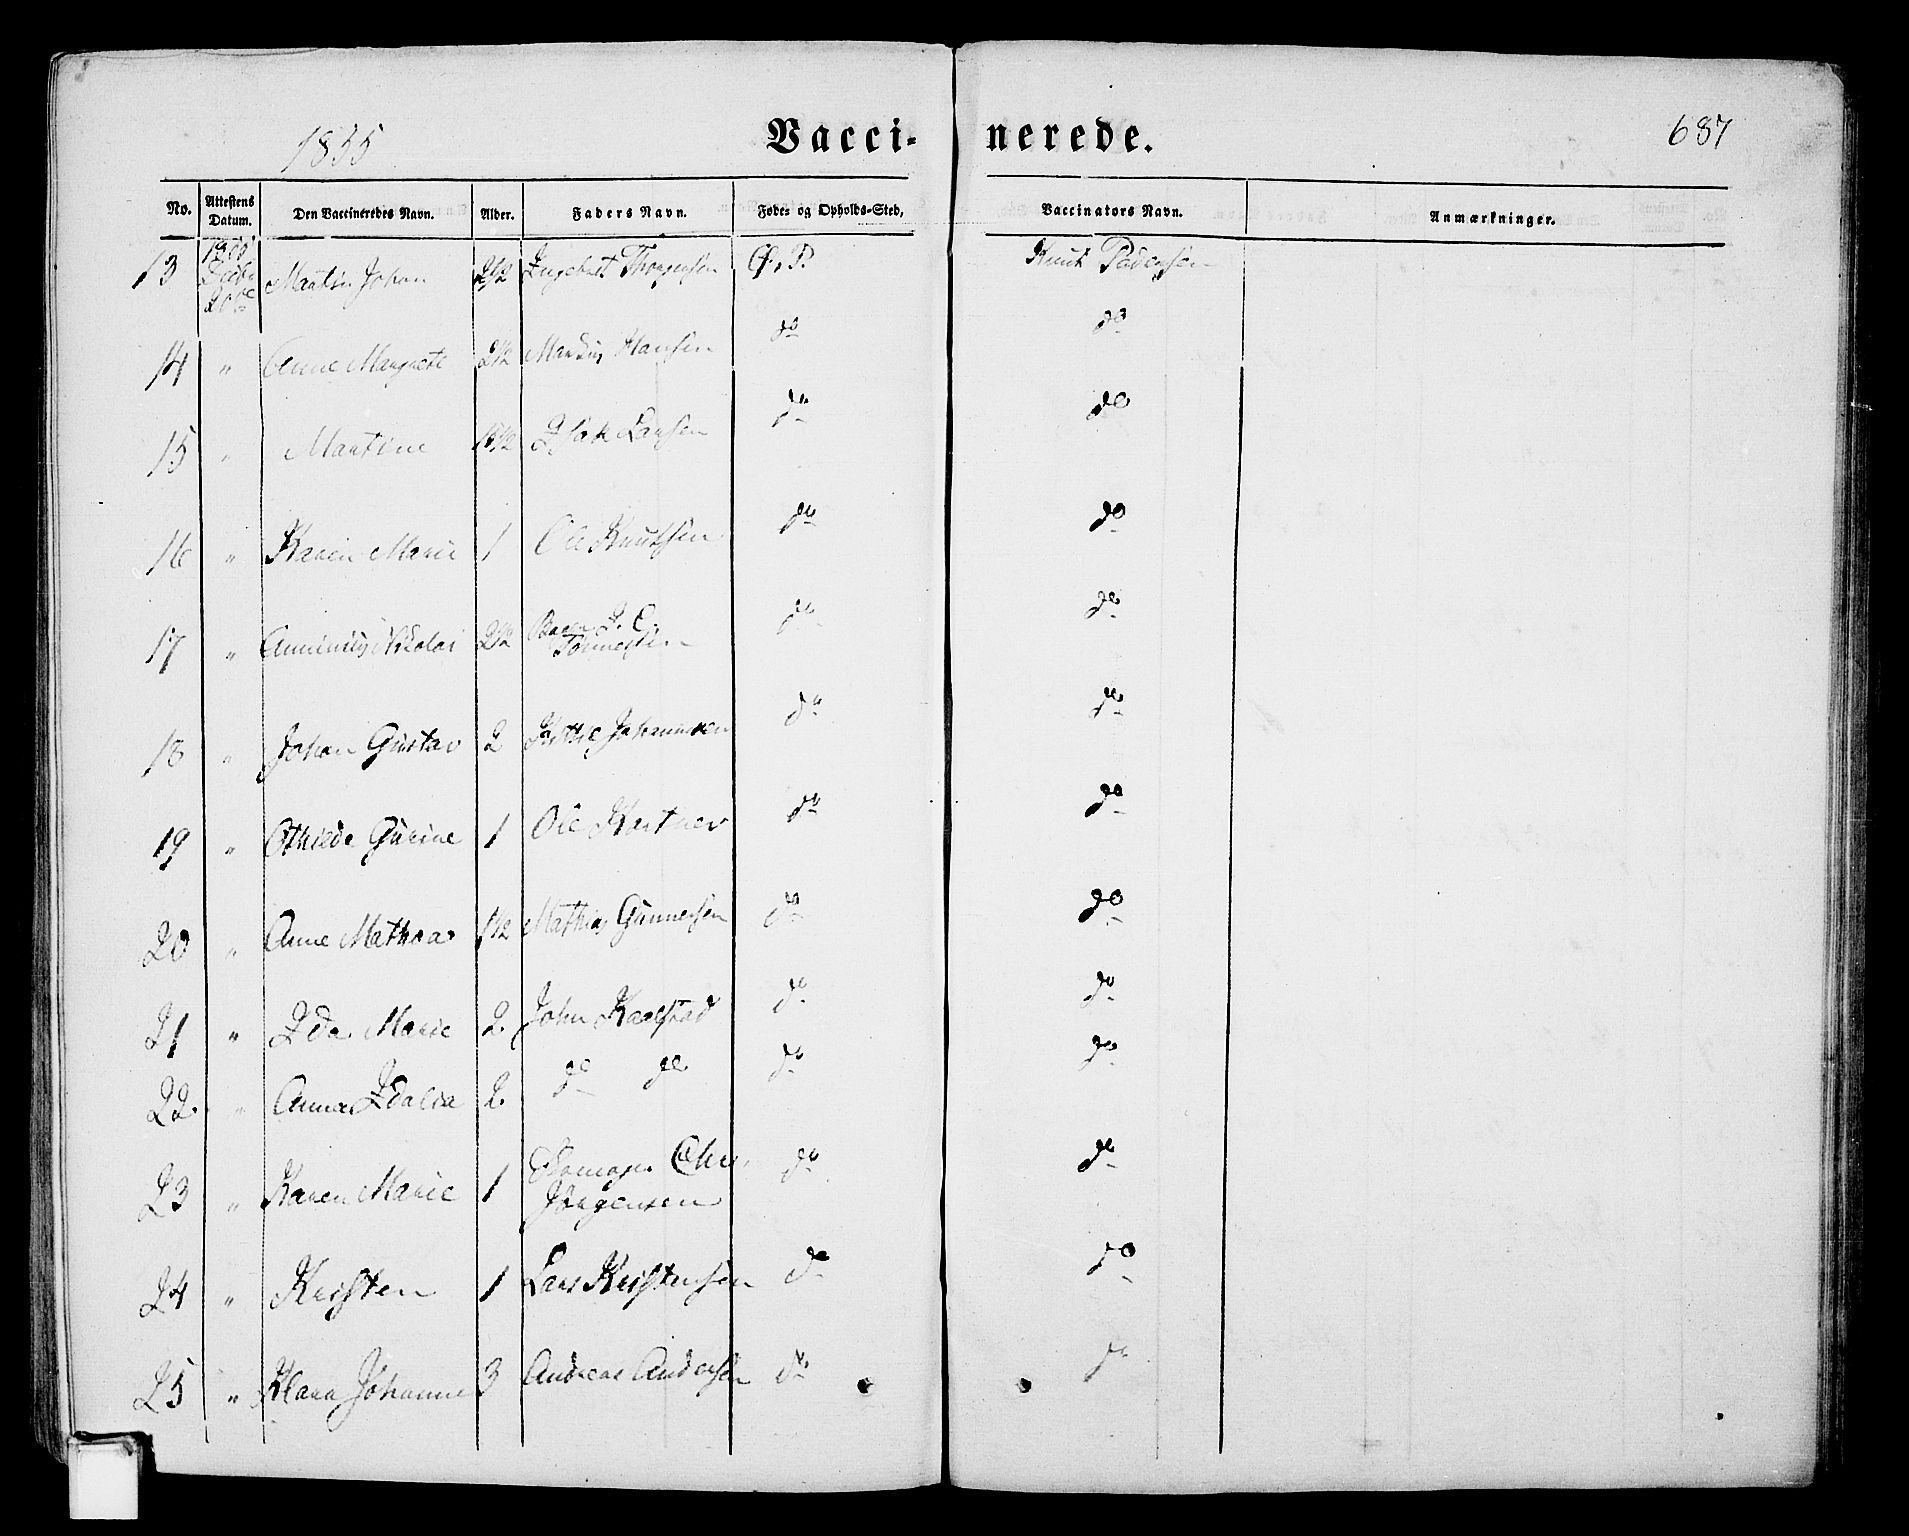 1855
Vacci- nerede.
687
No. Attestens Datum. Den Vaccineredes Navn. Alder. Faders Navn. Føde- og Opholds-Sted, Vaccinators Navn. Anmærkninger.
13 Martin Johan 2 1/2 Ø. P. Knut
14 " Anne Margrete 2 1/2 Hansen do do
15 " Martine 1 1/2 Isak Larsen do do
16 " Karen Marie 1 Ole Knutsen do do
17 " Nicolai 2 1/2 do do
Tønnesen
18 " Johan Gustav 2 Johannesen do do
19 " Othilde Gurine 1 Ole do do
20 " Anne Mathea 1 1/2 Mathias Gunnersen do do
21 " Ida Marie 2. John Kaalstad do do
22. " Anna Idalia 2. do do do do
23 " Karen Marie 1 Chr. do do
Jørgensen
24 " Kristen 1 Lars Kristensen do do
25 " Klara Johanne 3 Andreas Andersen do do